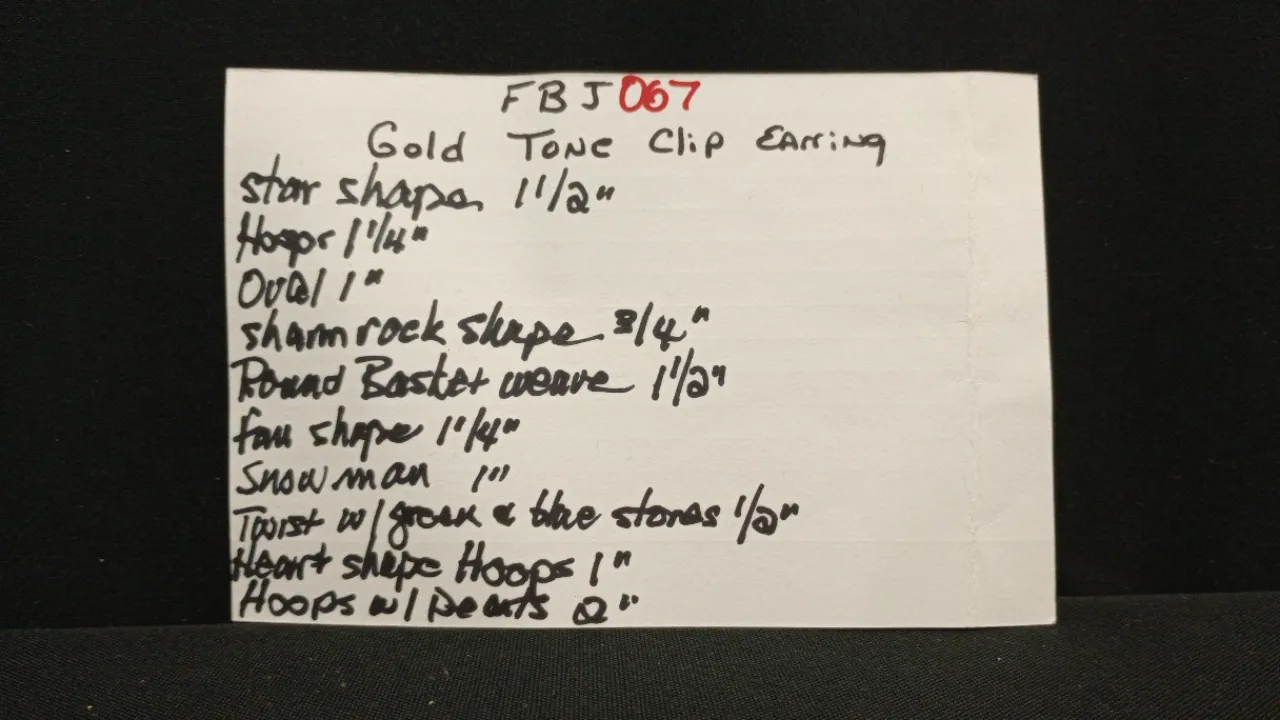 FBJ067
Gold Tone Clip Earring
star shape 1 1/2"
Hoops 1 1/4"
Oval 1"
shamrock shape 3/4"
Round Basket weave 1 1/2"
fan shape 1 1/4"
Snowman 1"
Twist w/green & blue stones 1/2"
Heart shape Hoops 1"
Hoops w/ 2"